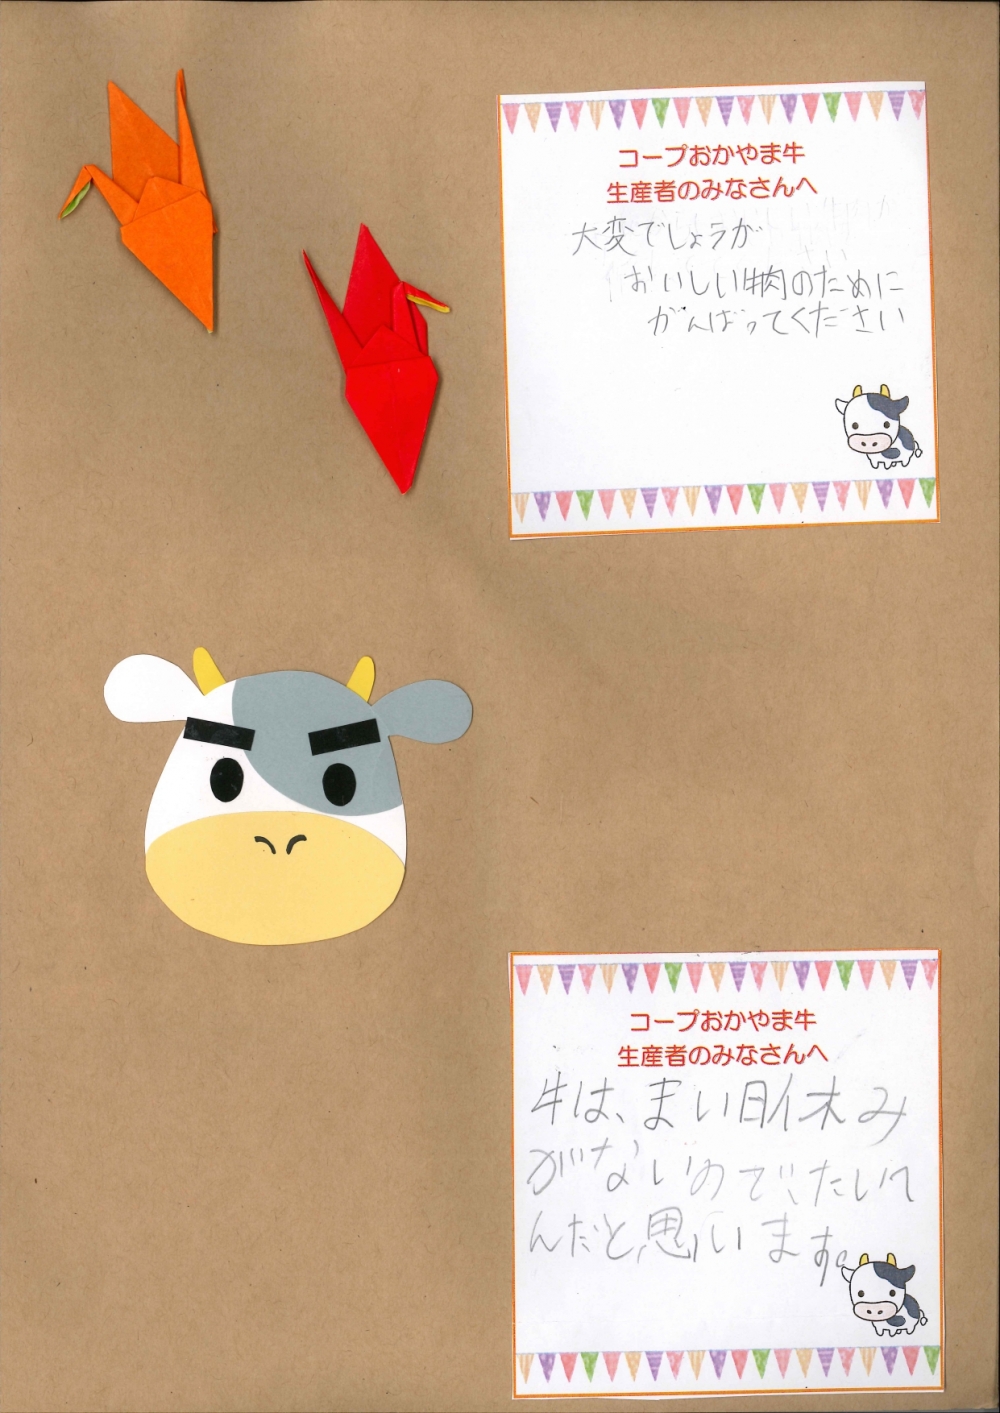 コープおかやま牛
生産者のみなさんへ
大変でしょうが
おいしい牛肉のために
がんばってください
コープおかやま牛
生産者のみなさんへ
牛は、まい日休み
がないので、たいへ
んだと思います。